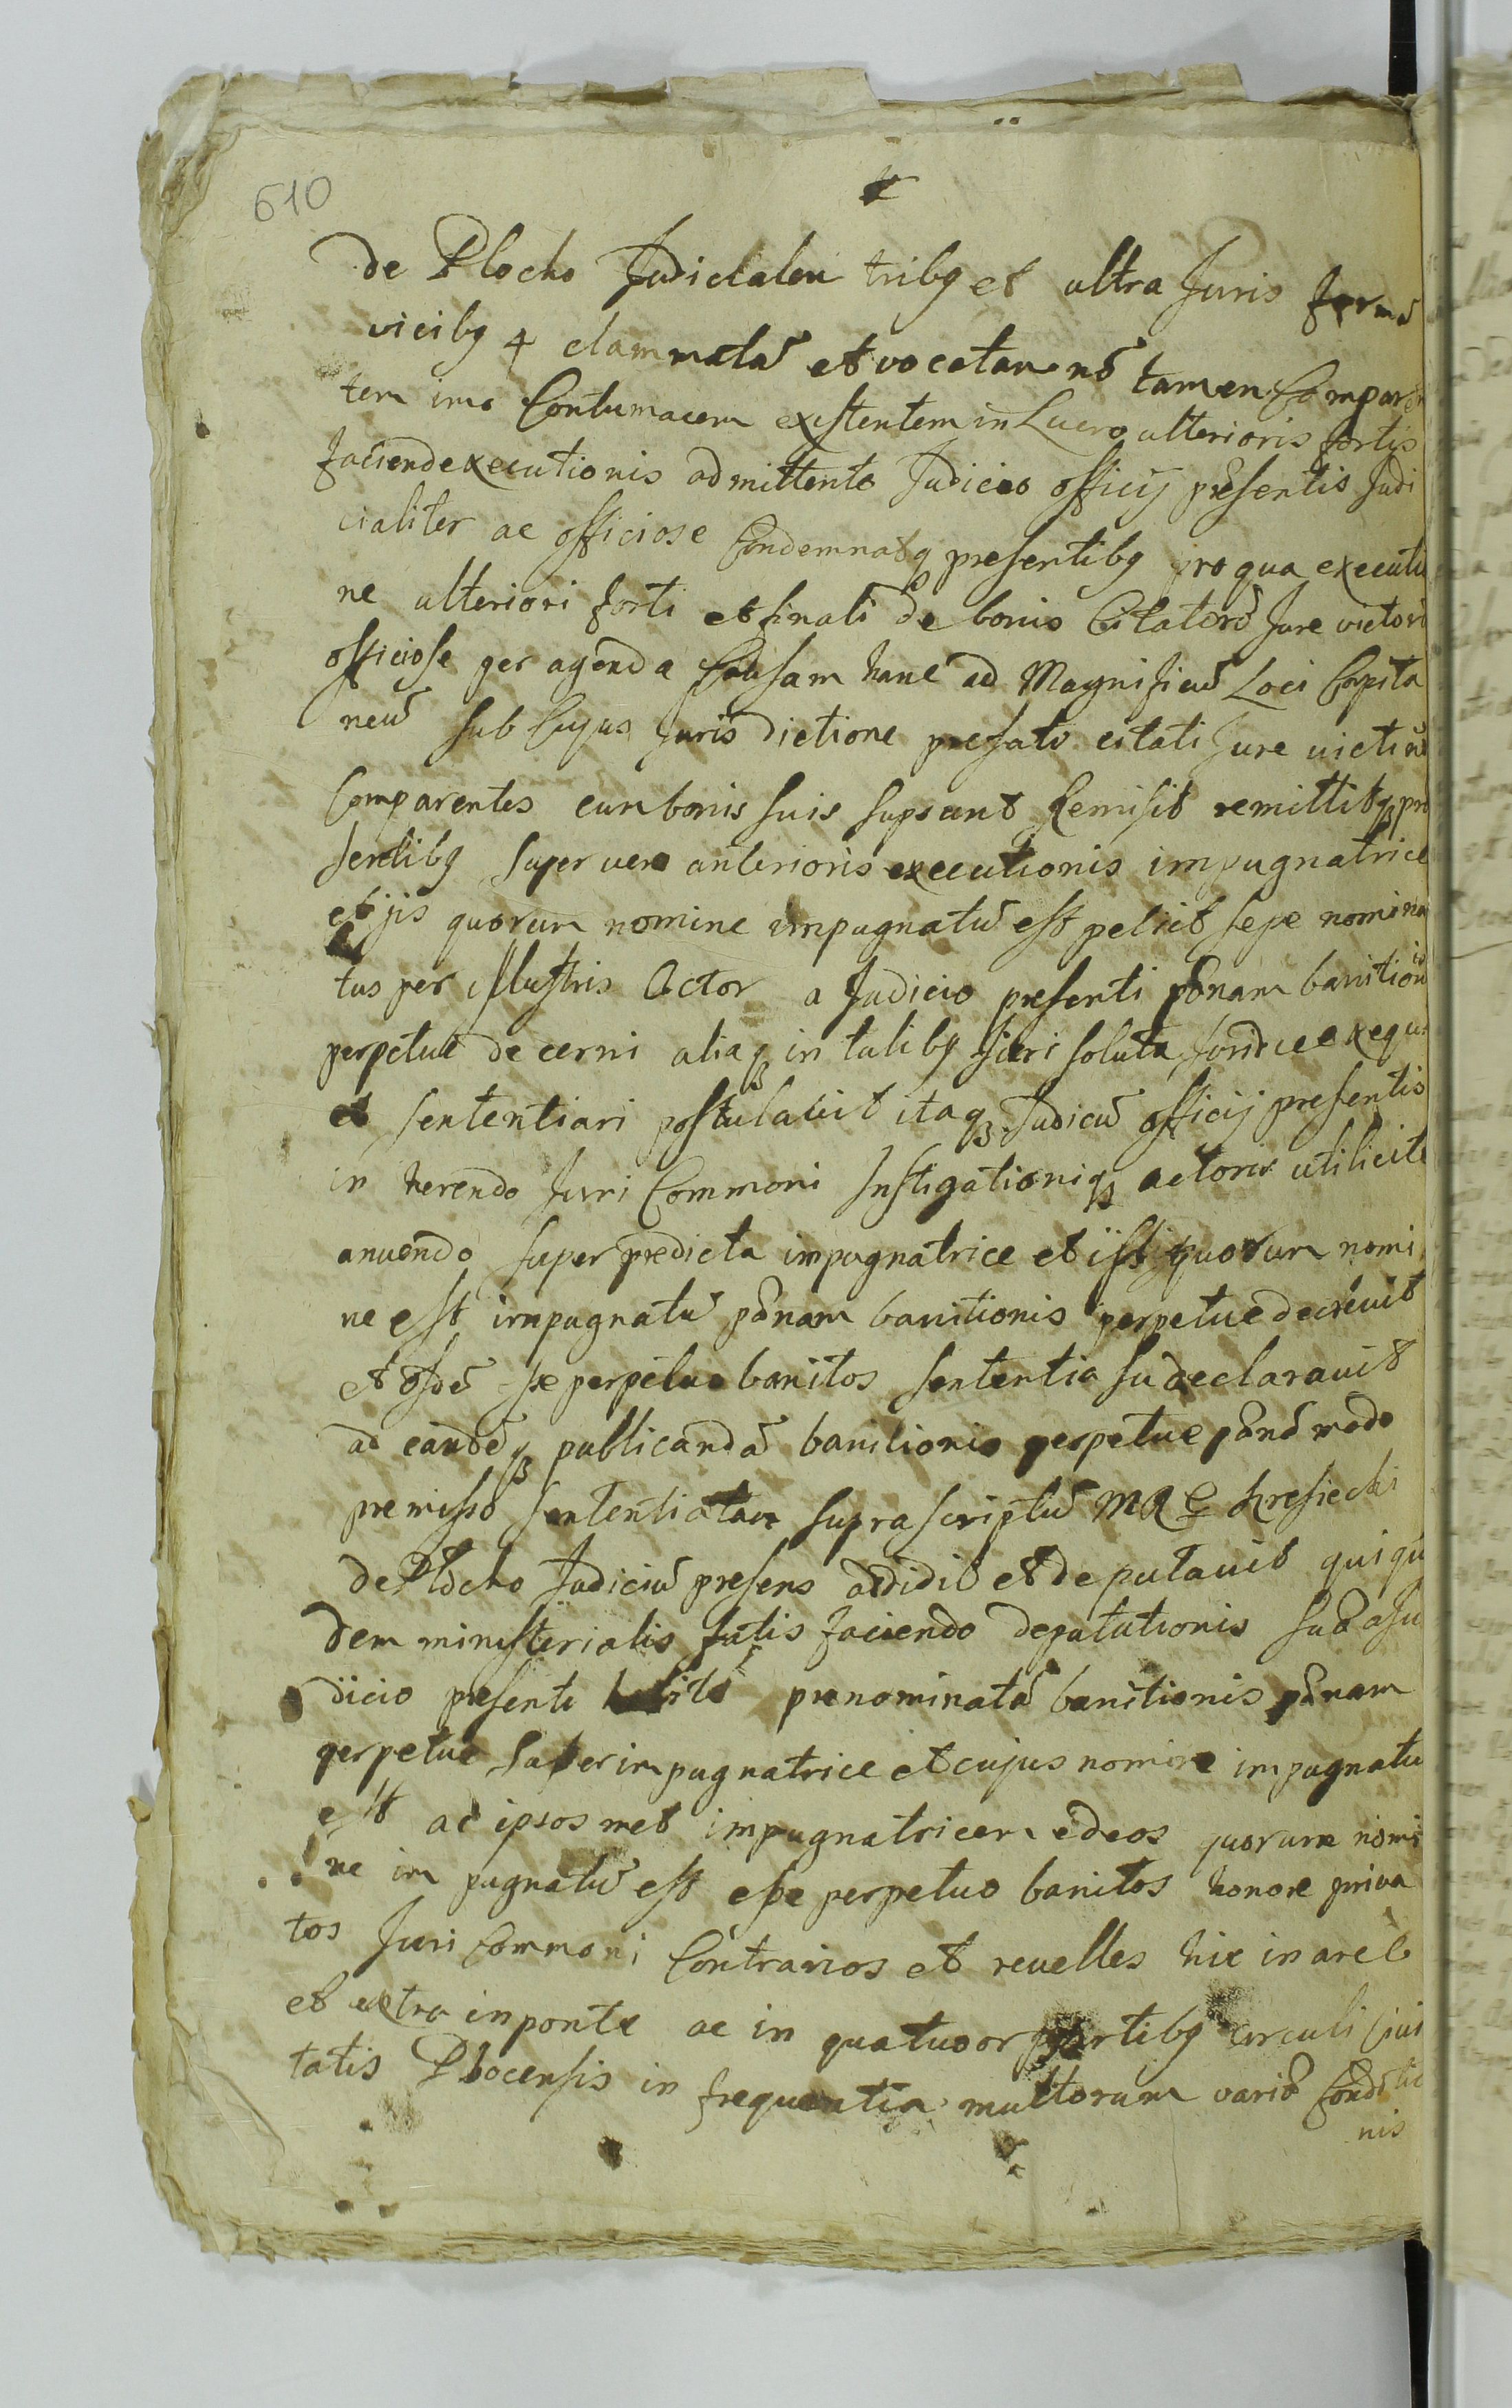 610
de Plocko Judicialem tribq et ultra Juris formã
vicibq 4 clammatã et vocatam nõ tamen Comparen
tem imo Contumacem existentem in Lucro ulterioris fortis
faciend executionis admittente Judicio officij presentis Judi
cialiter ac officiose Condemnatq presentibq pro qua executio
ne ulteriori forti et finali de bonis Citatorũ Jure victorũ
officiose peragenda Causam hanc ad Magnificũ Loci Capita
neũ sub Cujus Jurisdictione prefati citati Jure victi nõ
Comparentes cum bonis suis supsunt Remisit remittitqȝ pre
sentibq super vero anterioris executionis impugnatrice
et ijs quorum nomine impugnatũ est petiit sepe nomina
tus per illustris Actor a Judicio presenti pænam banitionis
perpetuæ decerni aliaqȝ in talibq fieri solita Juridice exequi
et sententiari postulavit itaqȝ Judiciũ officij presentis
in herendo Juri Commoni Instigationiqȝ actoris utiliciti
anuendo super predicta impugnatrice et iis quorum nomi
ne est impugnatũ pænam banitionis perpetue decrevit
et osdẽ se perpetuo banitos sententia su declaravit
ad eandẽqȝ publicandã banitionis perpetue pænã modo
premisso sententiatam suprascriptũ MR Kresiecki
de Plocko Judiciũ presens addidit et deputavit qui qui
dem ministerialis satis faciendo deputationis sub a Ju
dicio presenti prenominatã banitionis pænam
perpetue super impugnatrice et cujus nomine impugnatũ
est ac ipsosmet impugnatricem ed eos quorum nomi
ne impugnatũ est esse perpetuo banitos honore priva
tos Juri Commoni Contrarios et revelles hic in arce
et extra in ponte ac in quatuor partibq circuli Civi
tatis Plocensis in frequentia multorum variæ Condtio
nis